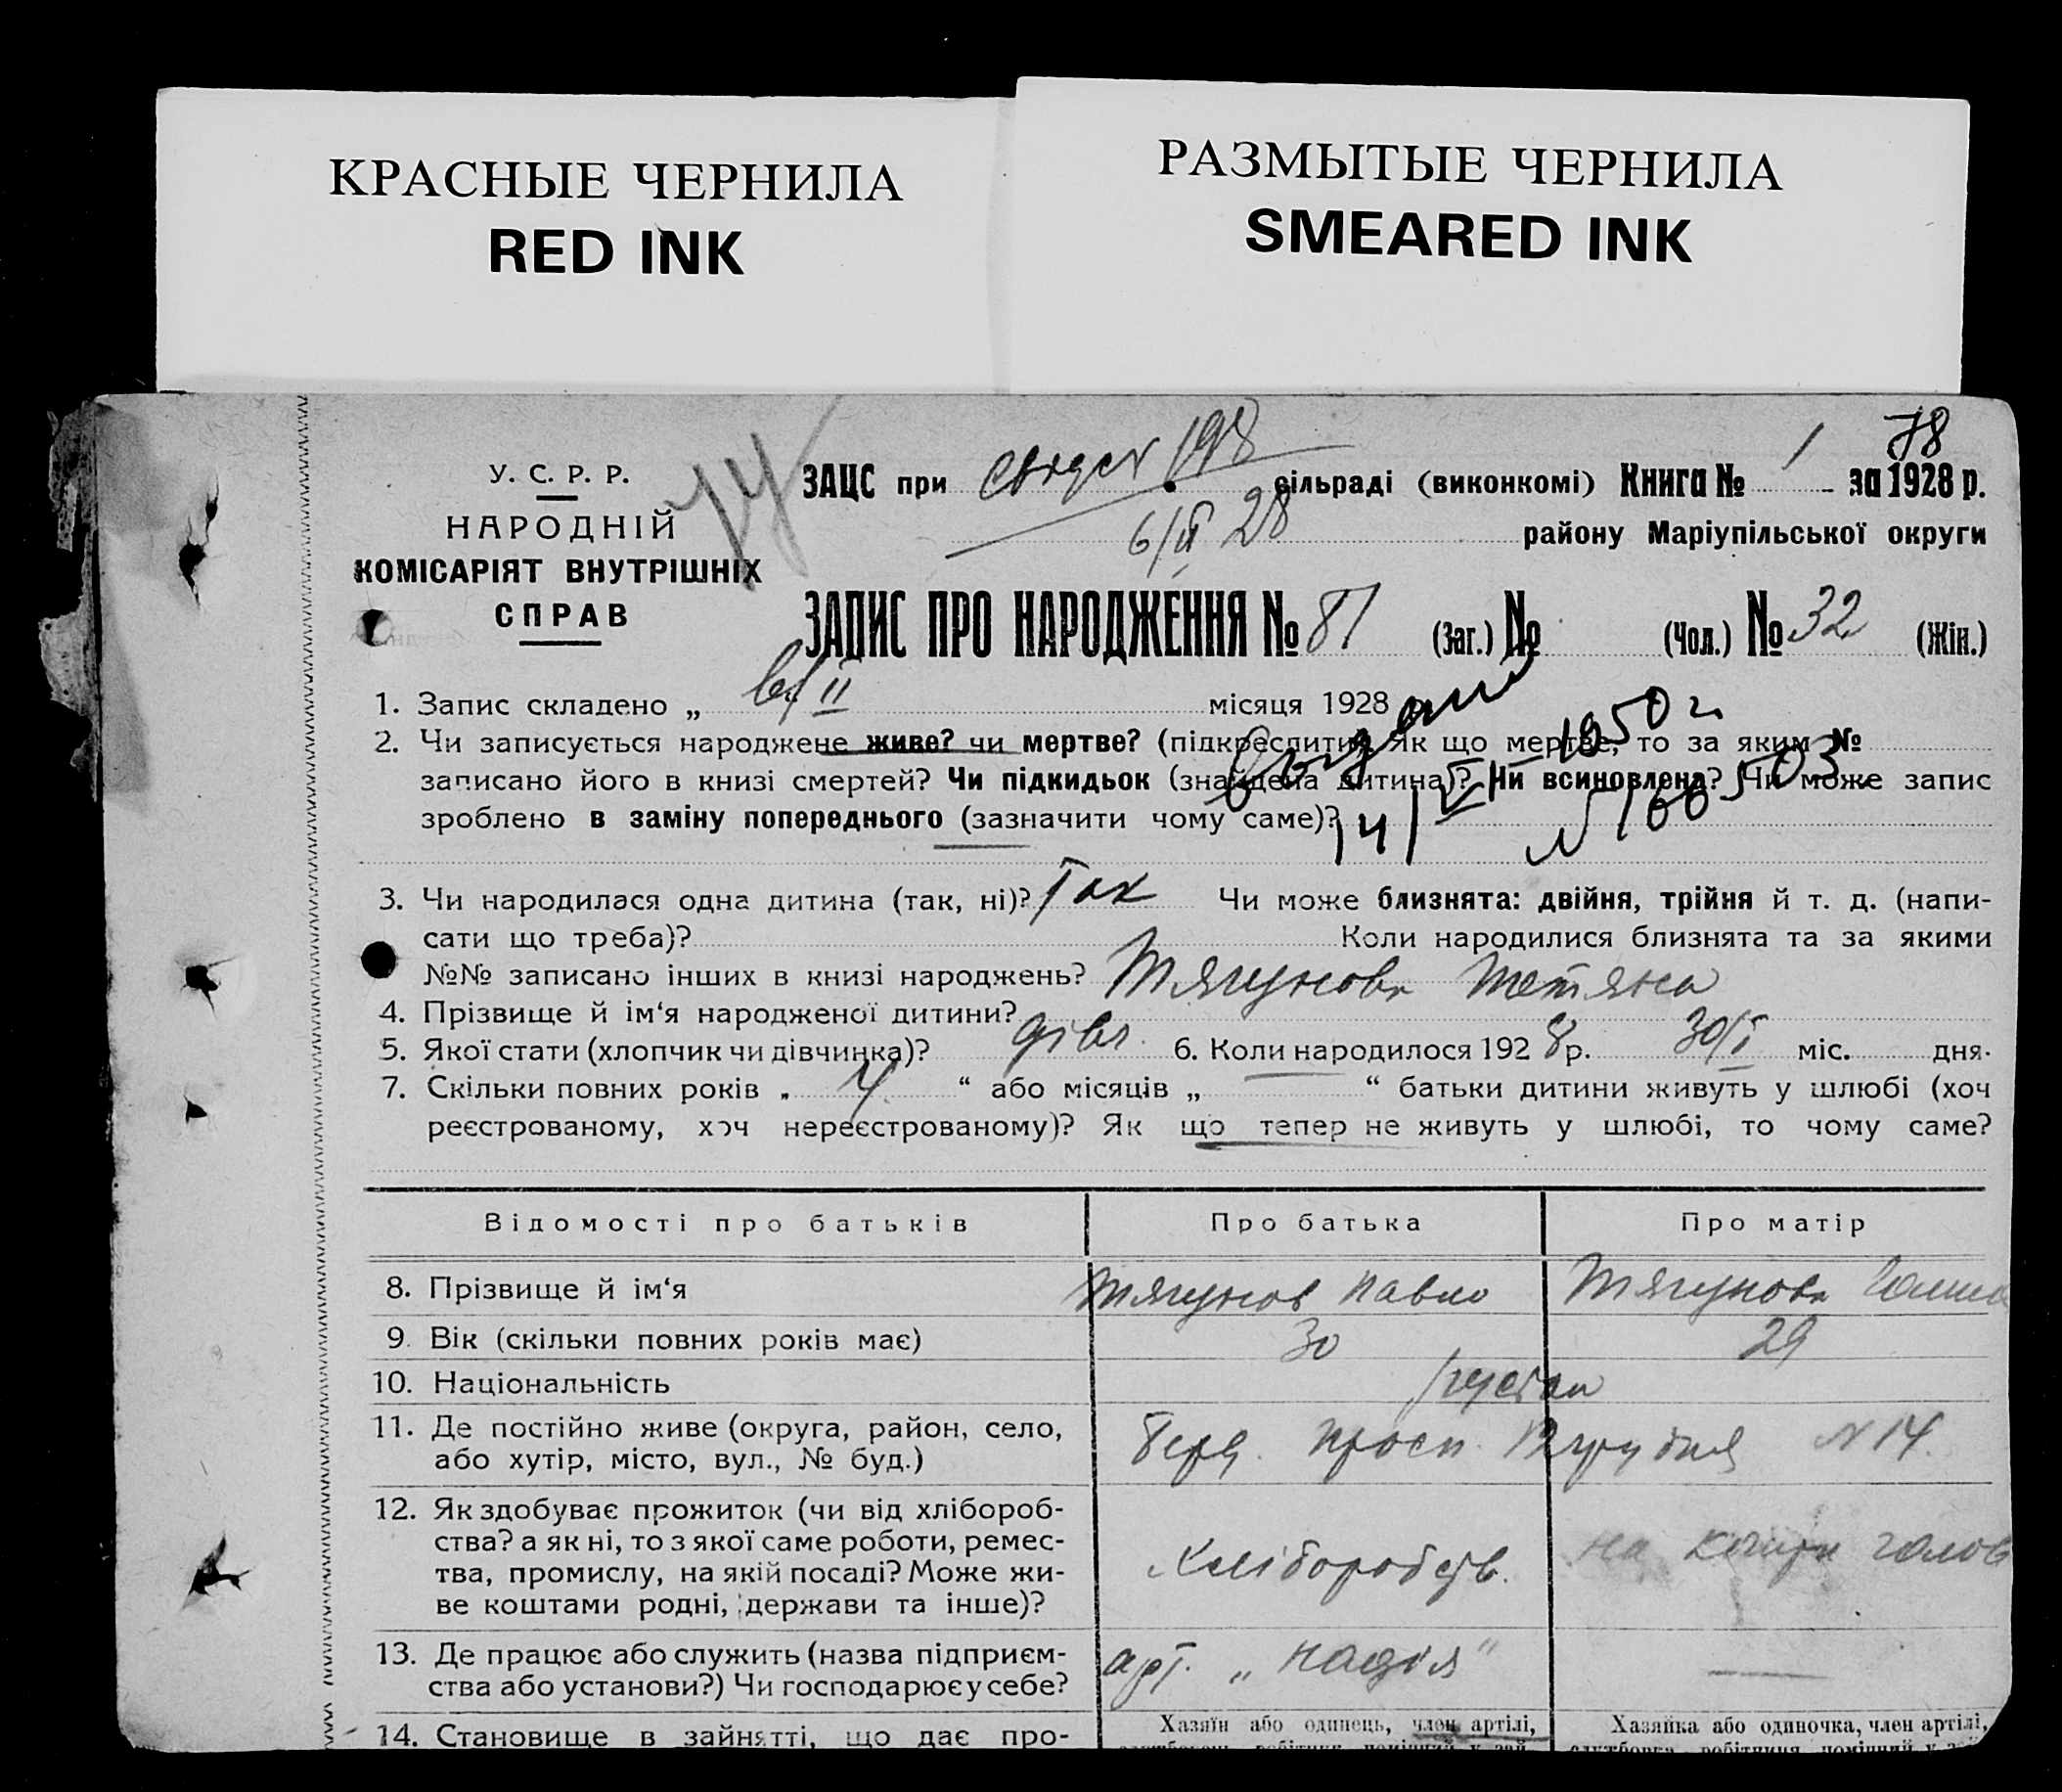 КРАСНЫЕ ЧЕРНИЛА
RED INK
РАЗМЫТЫЕ ЧЕРНИЛА
SMEARED INK
78
У. С. Р. Р.
НАРОДНІЙ
КОМІСАРІЯТ ВНУТРІШНІХ
СПРАВ
ЗАЦС при 198 сільраді (виконкомі) Книга № 1 за 1928 р.
6/II 28 району Маріупільської округи
ЗАПИС ПРО НАРОДЖЕННЯ № 81 (Заг.) № (Чол.) № 32 (Жін.)
1. Запис складено „ 6/II місяця 1928
2. Чи записується народжене живе? чи мертве? (підкреслити) Як що мертве, то за яким №
записано його в книзі смертей? Чи підкидьок (знайдена дитина)? Чи всиновлена? Чи може запис
зроблено в заміну попереднього (зазначити чому саме)?
1950 г.
3. Чи народилася одна дитина (так, ні)? Так Чи може близнята: двійня, трійня й т. д. (напи-
сати що треба)? Коли народилися близнята та за якими
№№ записано інших в книзі народжень?
4. Прізвище й ім‘я народженої дитини? Тягунова Тетяна
5. Якої стати (хлопчик чи дівчинка)? дівч. 6. Коли народилося 1928 р. 30/I міс. дня.
7. Скільки повних років „ 4 “ або місяців „ “ батьки дитини живуть у шлюбі (хоч
реєстрованому, хоч нереєстрованому)? Як що тепер не живуть у шлюбі, то чому саме?
Відомості про батьків Про батька Про матір
8. Прізвище й ім‘я Тягунов Павло Тягунова
9. Вік (скільки повних років має) 30 29
10. Національність
11. Де постійно живе (округа, район, село,
або хутір, місто, вул., № буд.) N 14.
12. Як здобуває прожиток (чи від хлібороб-
ства? а як ні, то з якої саме роботи, ремес-
тва, промислу, на якій посаді? Може жи-
ве коштами родні, держави та інше)?
Хліборобств. на кошти голов
13. Де працює або служить (назва підприєм-
ства або установи?) Чи господарює у себе?
арт. „Надія“
14. Становище в зайнятті, що дає про-
Хазяїн або одинець, член артілі,
Хазяйка або одиночка, член артілі,